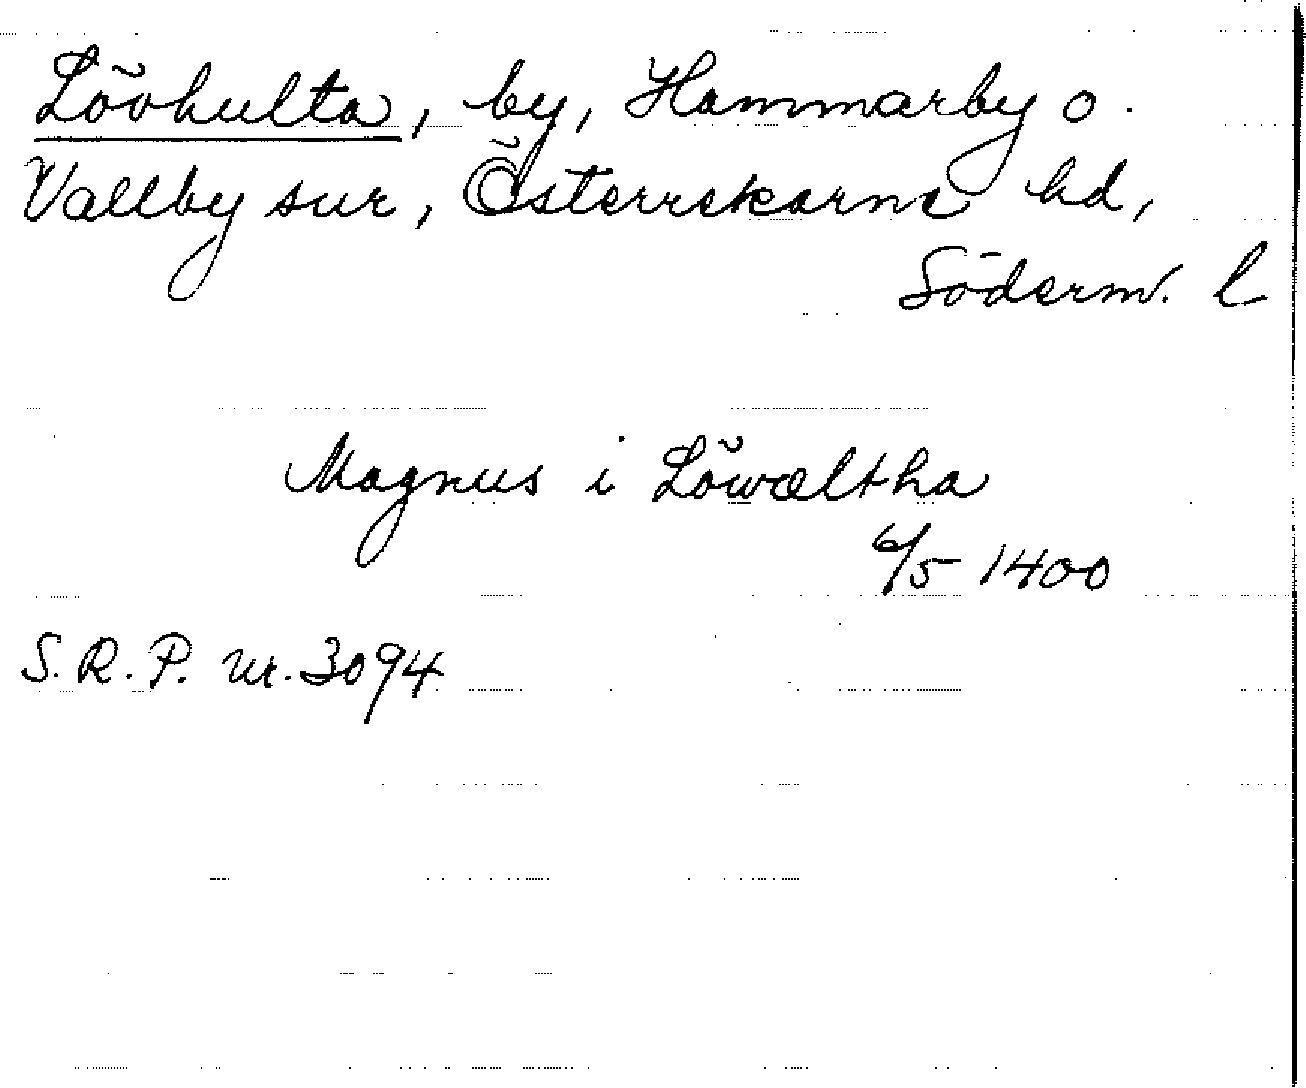 Lövhulta, by, Hammarby o.
Vallby snr, Österrekarne hd,
Söderm. l
Magnus i Löwæltha
6/5 1400
S.R.P. nr. 3094